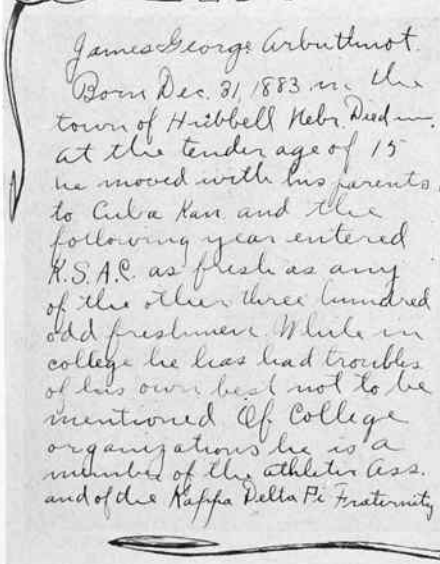 James George Arbuthnot.
Born Dec. 31, 1883 in the
town of Hubbell Nebr. Died —.
At the tender age of 15
he moved with his parents
to Cuba Kan. and the
following year entered
K.S.A.C. as fresh as any
of the other three hundred
odd freshmen. While in
college he has had troubles
of his own best not to be
mentioned. Of College
organizations he is a
member of the athletic Ass.
and of the Kappa Delta Pi Fraternity